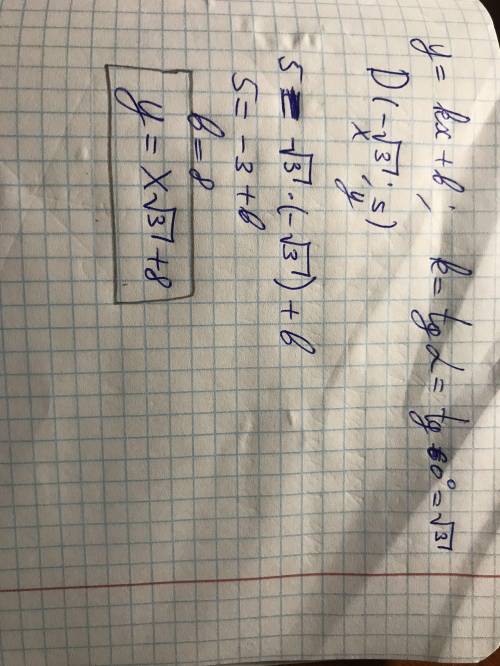 y = kx + b; k = tg α = tg 60° = √3
D (-√3; 5)
x y
5 = √3 · (-√3) + b
5 = -3 + b
b = 8
y = x√3 + 8